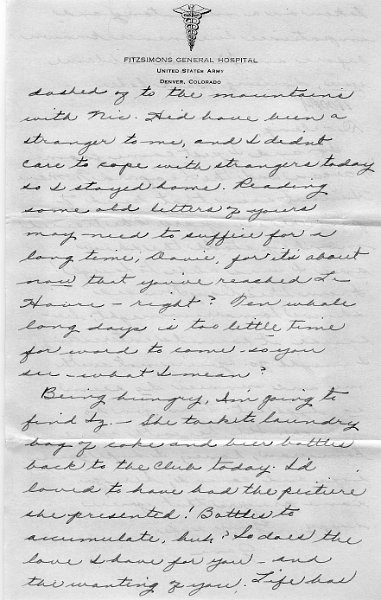 FITZSIMONS GENERAL HOSPITAL
UNITED STATES ARMY
DENVER, COLORADO
dashed off to the mountains
with Nic. He'd have been a
stranger to me, and I didn't
care to cope with strangers today
so I stayed home. Reading
some old letters of yours
may need to suffice for a
long time, Davie, for it's about
now that you've reached Le
Havre - right? Ten whole
long days is too little time
for word to come - so you
see - what I mean?
Being hungry, I'm going to
find Iz. - She took a laundry
bag of coke and beer bottles
back to the Club today. I'd
loved to have had the picture
she presented! Bottles to
accumulate, huh? So does the
love I have for you - and
the wanting of you. Life has